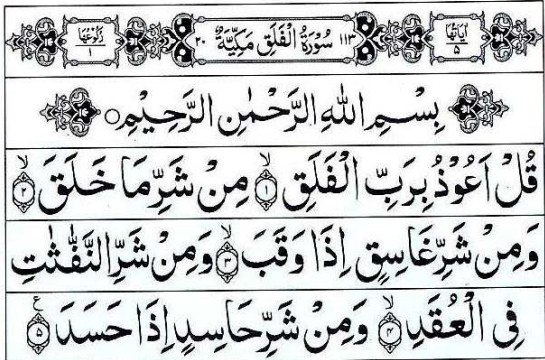 اٰیَاتُهَا ٥ ١١٣ سُوْرَةُ الْفَلَقِ مَكِّيَّةٌ ٢٠ رُكُوْعُهَا ١
بِسْمِ اللهِ الرَّحْمٰنِ الرَّحِيْمِ
قُلْ اَعُوْذُ بِرَبِّ الْفَلَقِ ۙ﴿١﴾ مِنْ شَرِّ مَا خَلَقَ ۙ﴿٢﴾
وَمِنْ شَرِّ غَاسِقٍ اِذَا وَقَبَ ۙ﴿٣﴾ وَمِنْ شَرِّ النَّفّٰثٰتِ
فِى الْعُقَدِ ۙ﴿٤﴾ وَمِنْ شَرِّ حَاسِدٍ اِذَا حَسَدَ ﴿٥﴾ ع